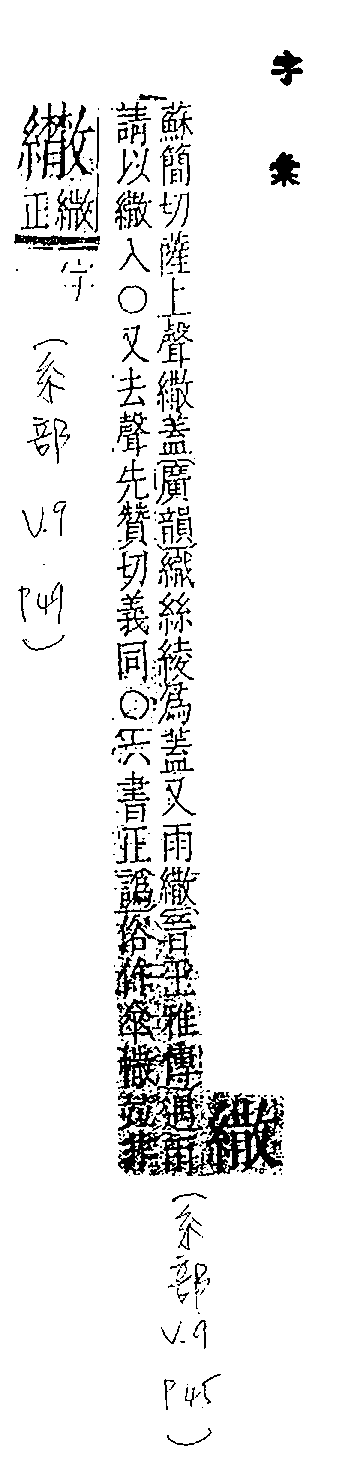 字彙
繖
蘇簡切薩上聲繖蓋廣韻織絲綾爲蓋又雨繖晉王雅傳遇雨
請以繖入〇又去聲先贊切義同〇六書正譌俗作傘並非
(糸部 V.9 P45)
繖
正
字
(糸部 V.9 P49)